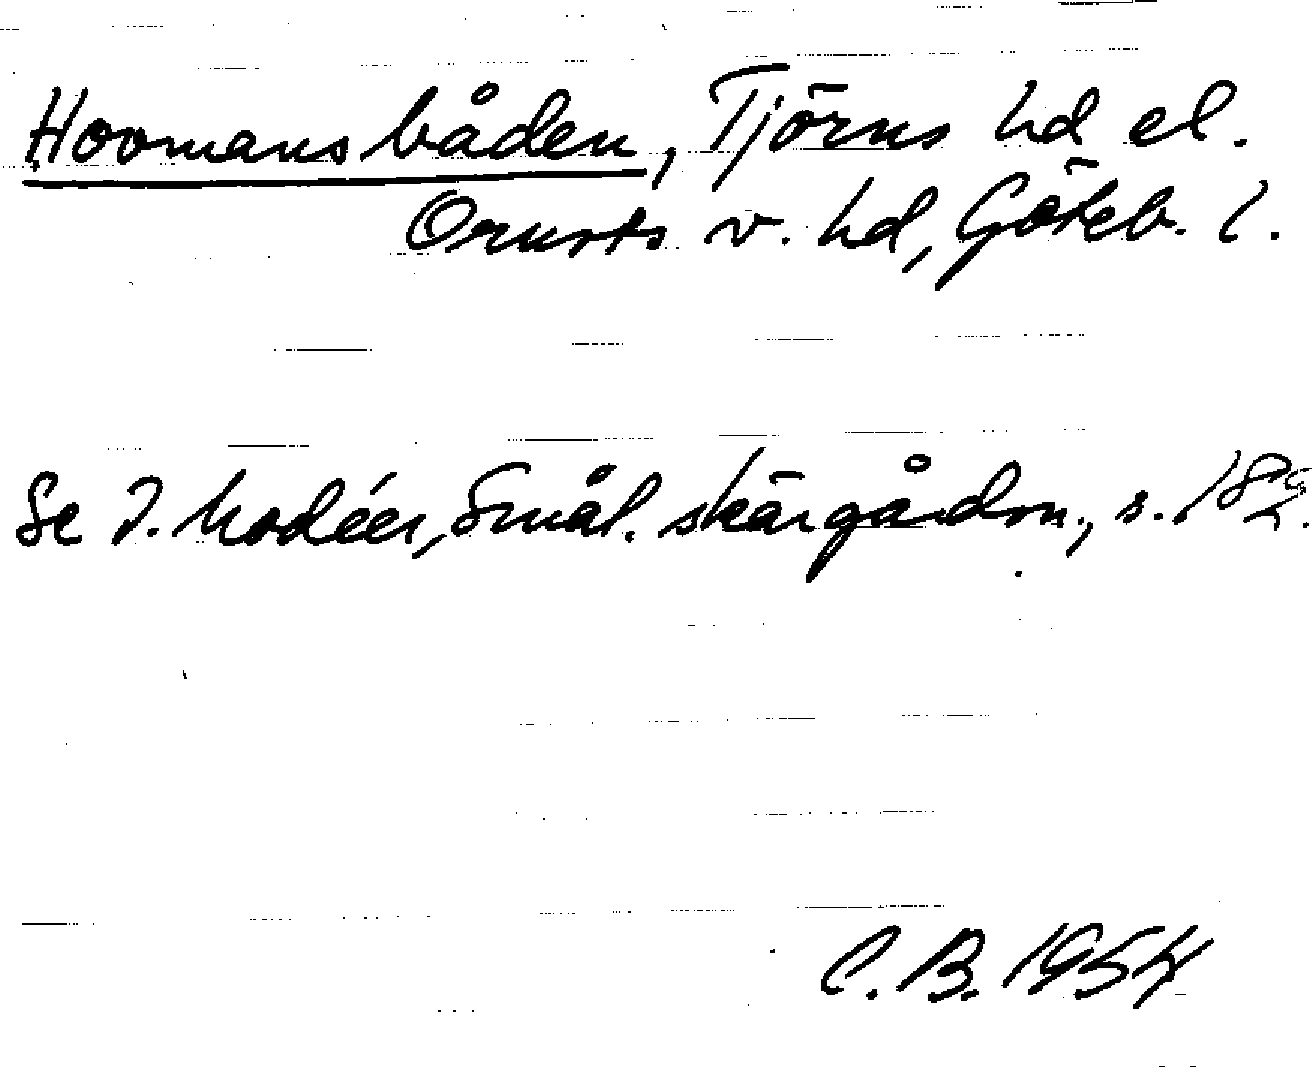 Hoomansbåden, Tjörns hd el.
Orusts v. hd, Göteb. l.
Se I. Modéer, Smål. skärgårdsn., s. 182.
C. B. 1954